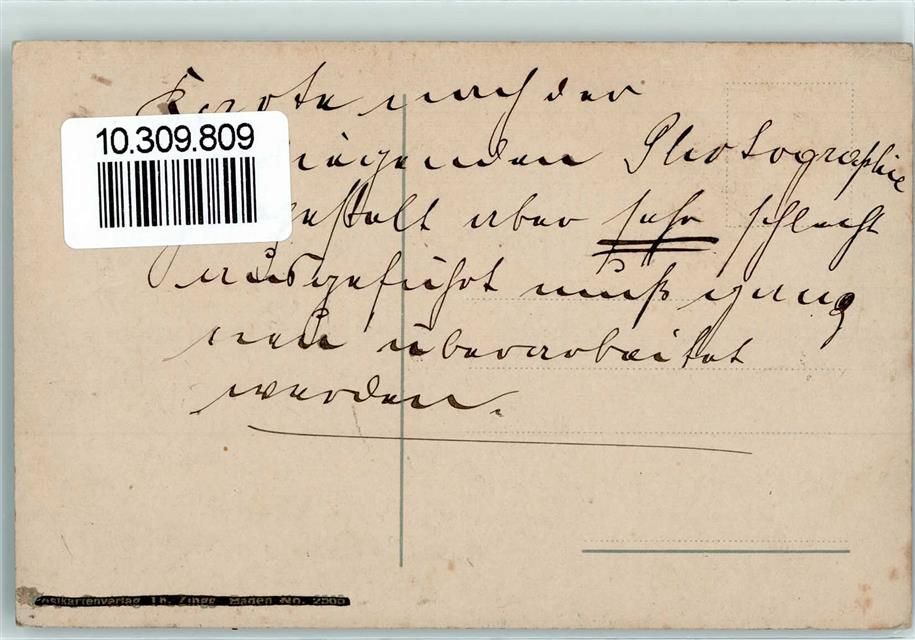 Karte nach der
10.309.809
liegenden Photographie
gestellt aber sehr schlecht
ausgeführt muß ganz
neu überarbeitet
werden.
Postkartenverlag Th. Zingg, Baden No. 2566